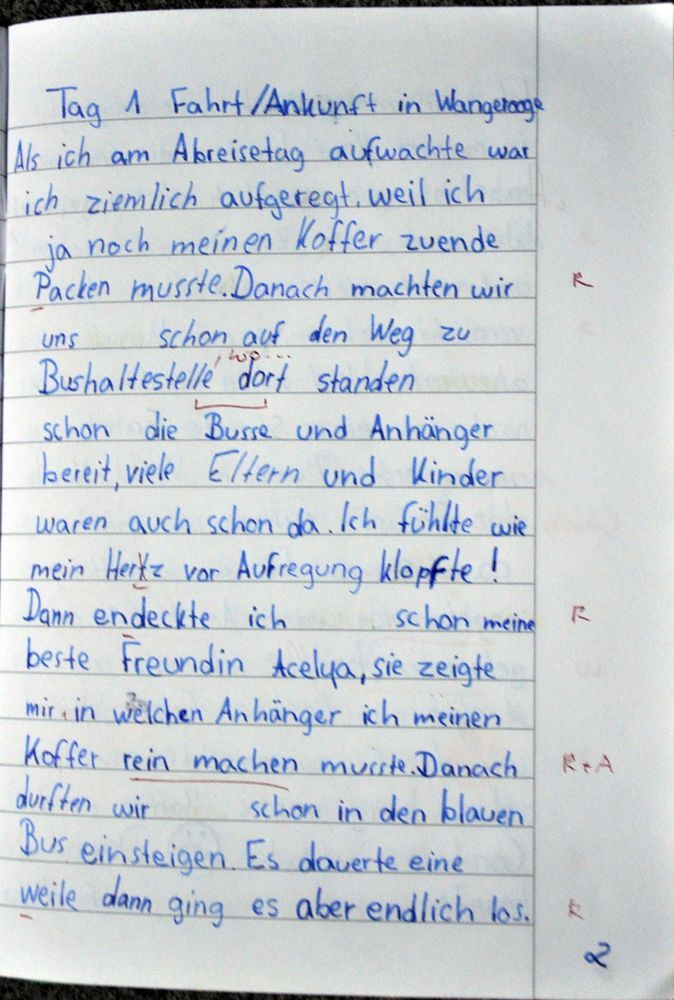 Tag 1 Fahrt/Ankunft in Wangerooge
Als ich am Abreisetag aufwachte war
ich ziemlich aufgeregt, weil ich
ja noch meinen Koffer zuende
Packen musste. Danach machten wir R
uns schon auf den Weg zu
, wo...
Bushaltestelle dort standen
schon die Busse und Anhänger
bereit, viele Eltern und Kinder
waren auch schon da. Ich fühlte wie
mein Hertz vor Aufregung klopfte!
Dann endeckte ich schon meine R
beste Freundin Acelya, sie zeigte
mir, in welchen Anhänger ich meinen
Koffer rein machen musste. Danach R+A
durften wir schon in den blauen
Bus einsteigen. Es dauerte eine
weile dann ging es aber endlich los. R
2